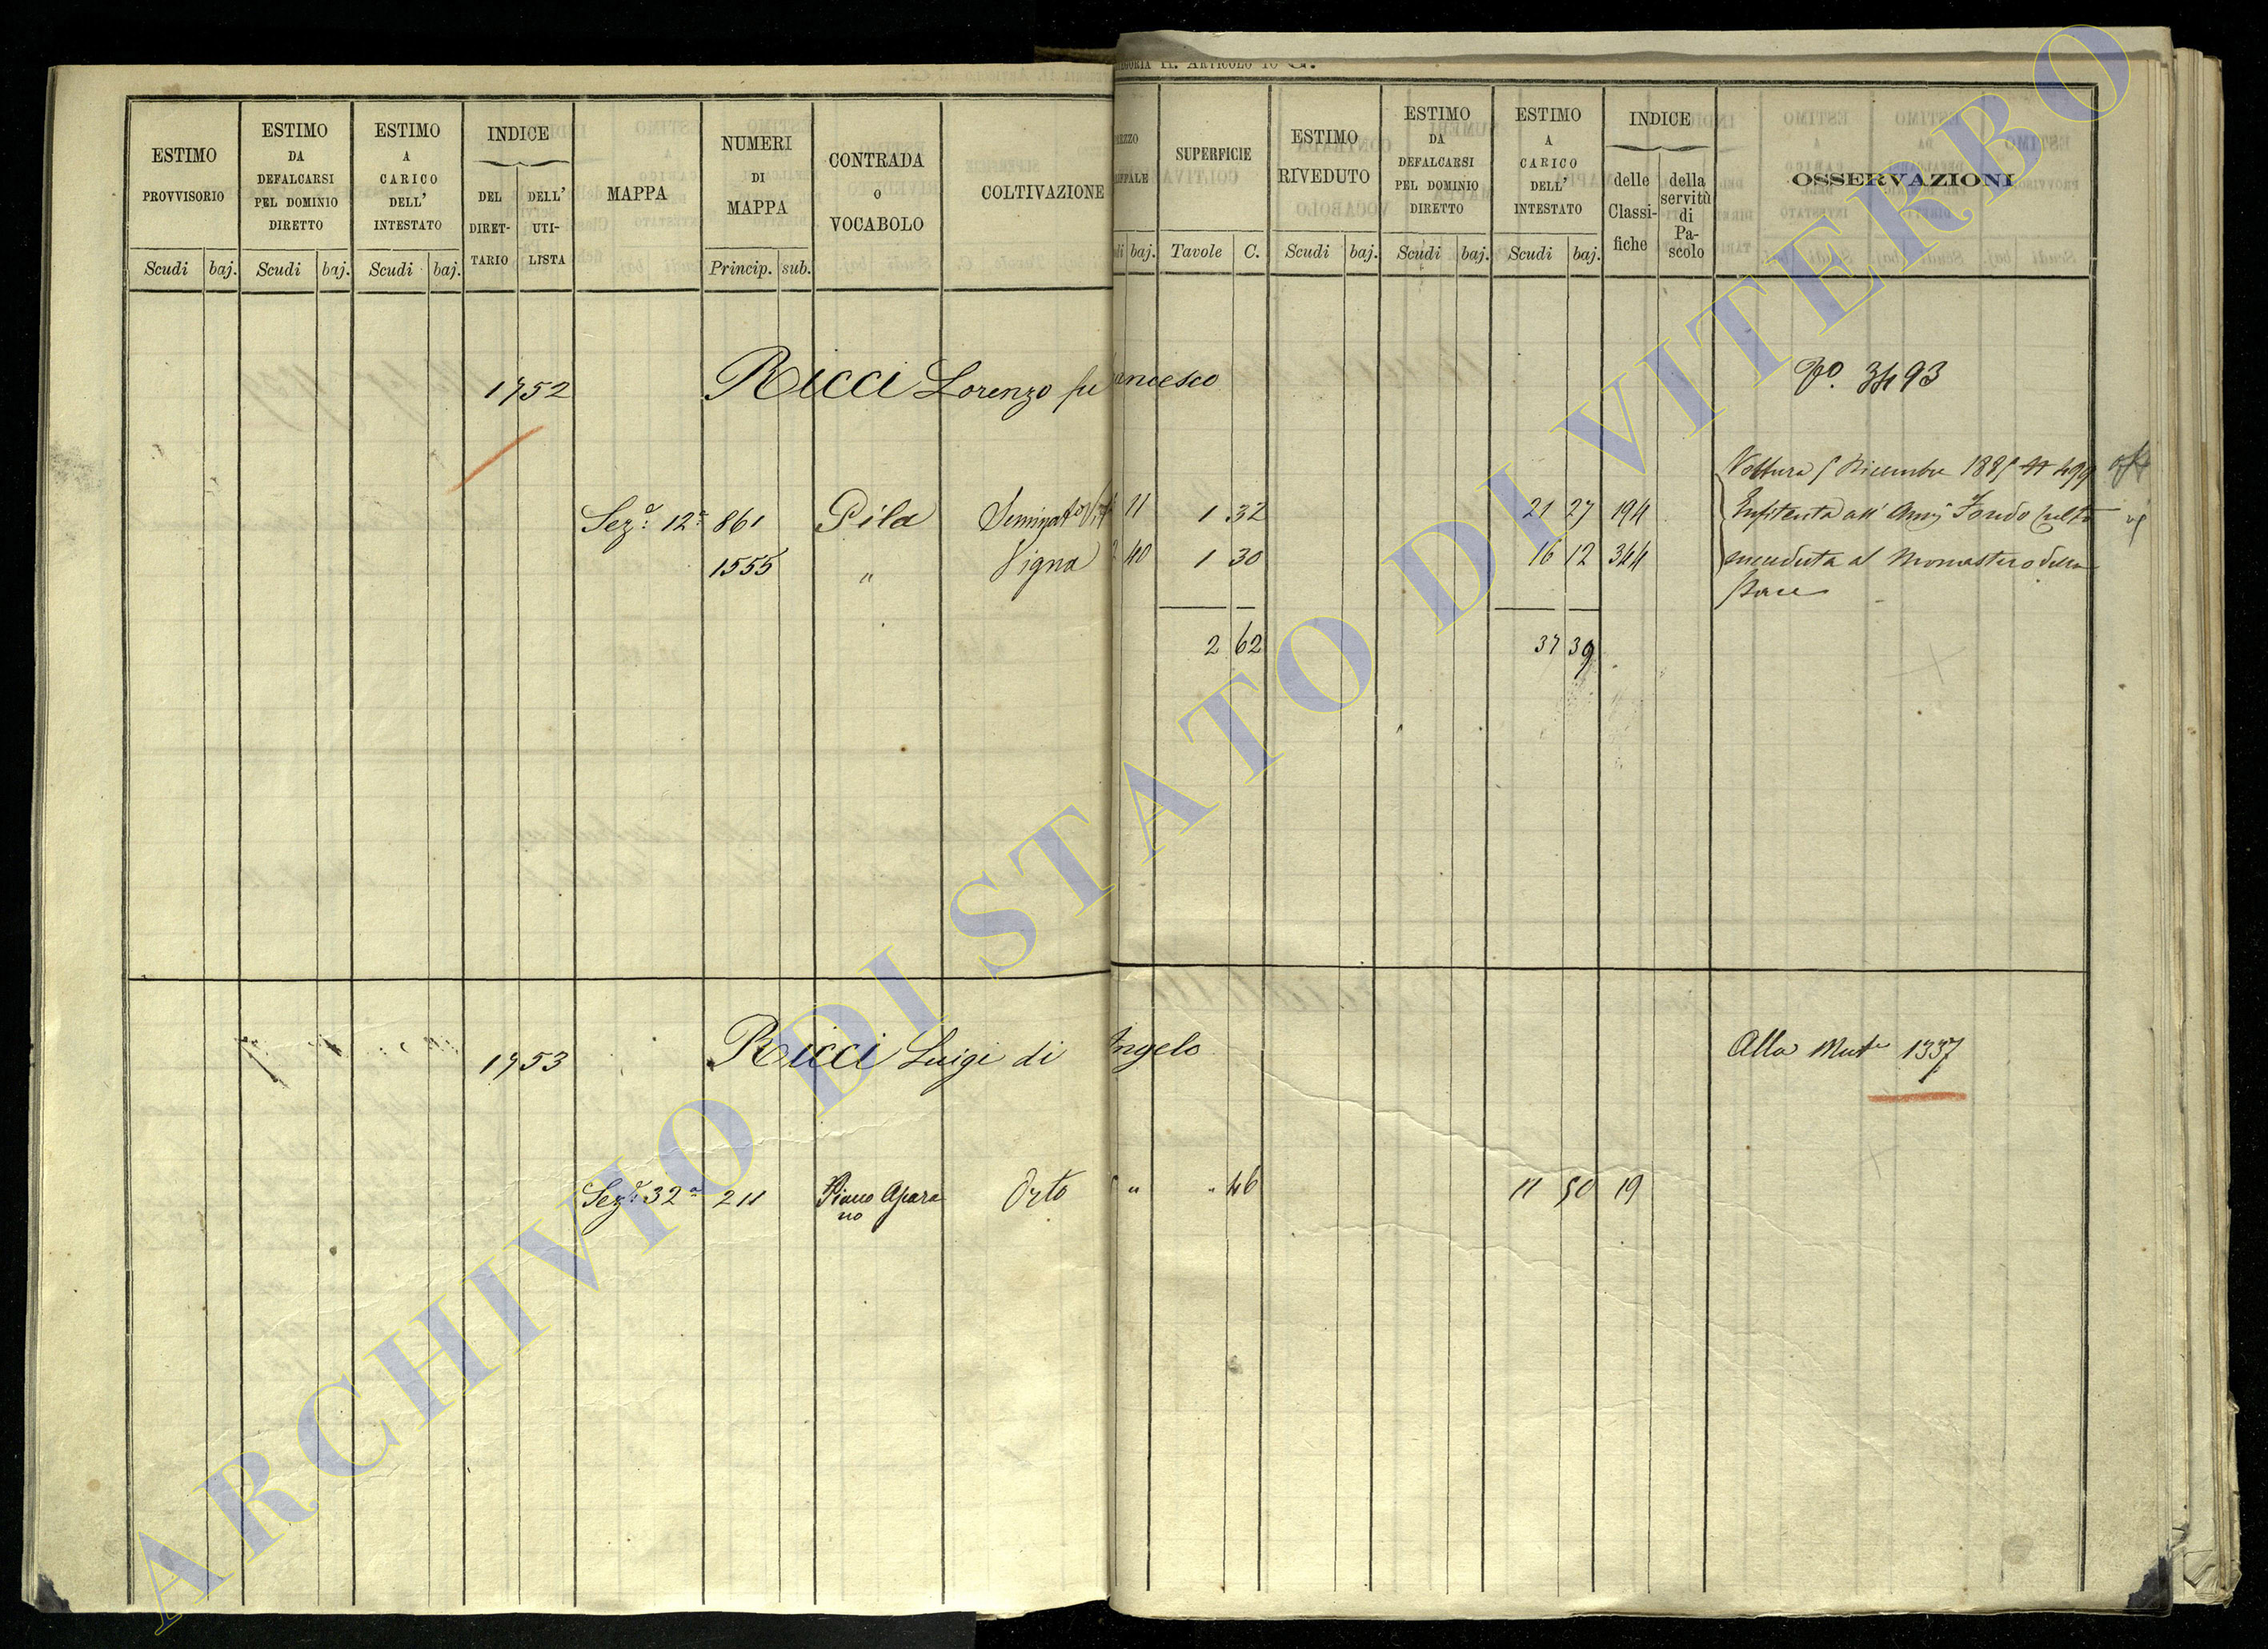 CATEGORIA II. ARTICOLO 10 G.
ESTIMO PROVVISORIO
Scudi baj.
ESTIMO DA DEFALCARSI PEL DOMINIO DIRETTO
Scudi baj.
ESTIMO A CARICO DELL' INTESTATO
Scudi baj.
INDICE
DEL DIRET-
TARIO
DELL' UTI-
LISTA
MAPPA
NUMERI DI MAPPA
Princip. sub.
CONTRADA
o
VOCABOLO
COLTIVAZIONE
baj.
SUPERFICIE
Tavole C.
ESTIMO RIVEDUTO
Scudi baj.
ESTIMO DA DEFALCARSI PEL DOMINIO DIRETTO
Scudi baj.
ESTIMO A CARICO DELL' INTESTATO
Scudi baj.
INDICE
delle Classi-
fiche
della servitù di Pa-
scolo
OSSERVAZIONI
1752 Ricci Lorenzo fu ancesco Po. 3493
Voltura 5 Dicembre 1885 N 499
Seza. 12a 861 Pila Seminato Vit 11 1 32 21 27 194 Enfiteuta all' Amm Fondo Culto
1555 " Vigna 2 40 1 30 16 12 344 succeduta al Monastero della
Pace
2 62 37 39
1753 Ricci Luigi di Angelo Alla Muta 1337
Seza. 32a 211 Piano Apara
no Orto " " 46 11 50 19
ARCHIVIO DI STATO DI VITERBO